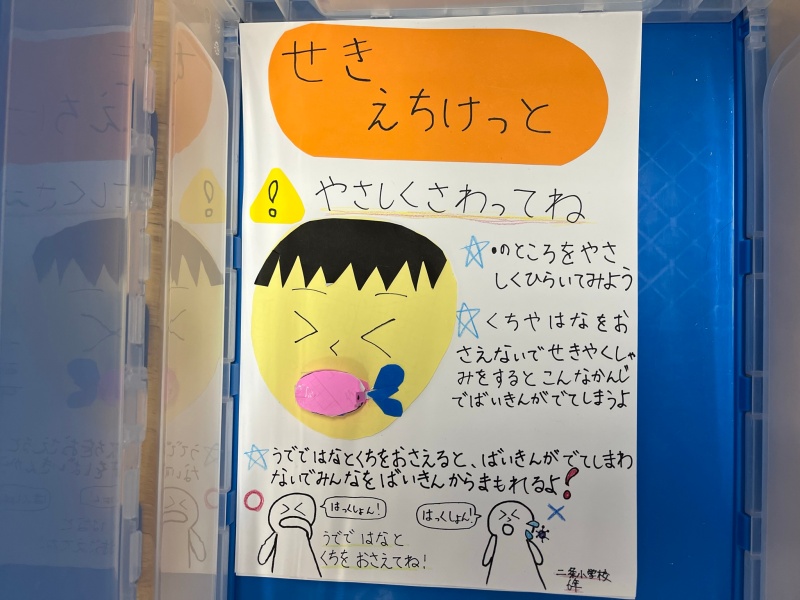 せき
えちけっと
やさしくさわってね
・のところをやさ
しくひらいてみよう
くちやはなをお
さえないでせきやくしゃ
みをするとこんなかんじ
でばいきんがでてしまうよ
うでではなとくちをおさえると、ばいきんがでてしまわ
ないでみんなをばいきんからまもれるよ!
はっくしょん!
うでではなと
くちをおさえてね!
はっくしょん!
二条小学校
6年